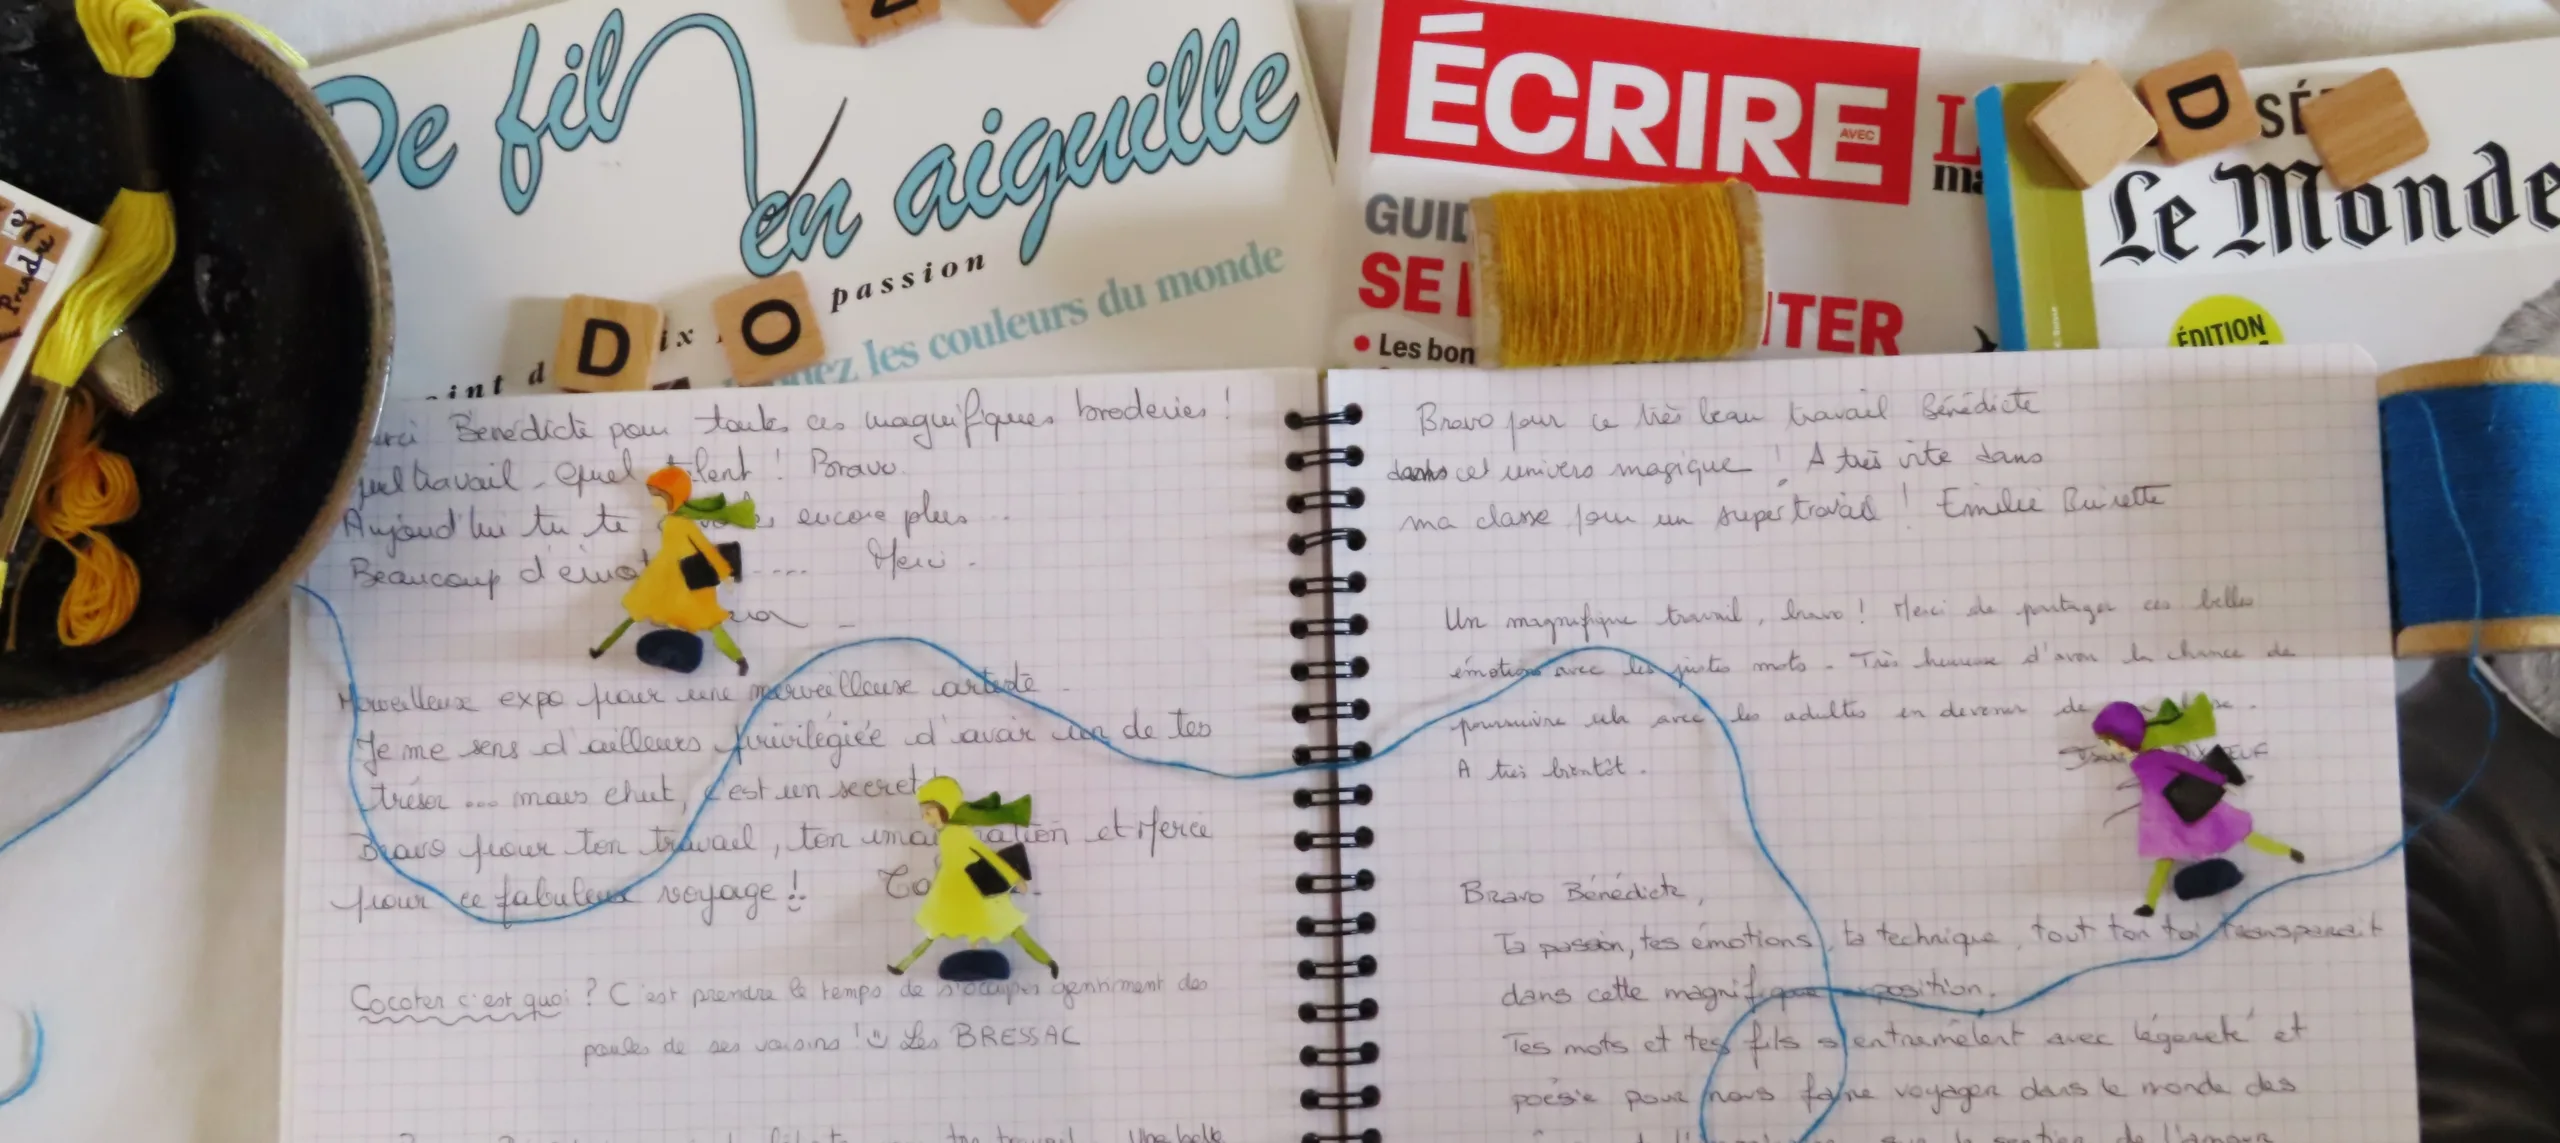 De fil
en aiguille
passion
les couleurs du monde
D
O
ÉCRIRE
AVEC
GUID
SE
TER
Les bon
D
Le Monde
ÉDITION
Prendre
Bénédicte pour toutes ces magnifiques broderies !
travail - Quel talent ! Bravo.
Aujourd'hui tu te encore plus ...
Beaucoup d' .... Merci -
Merveilleux expo pour une merveilleuse artiste
Je me sens d'ailleurs privilégiée d'avoir un de tes
trésor ... mais chut, c'est un secret
Bravo pour ton travail, ton imagination et Merci
pour ce fabuleux voyage !
Cocoter c'est quoi ? C'est prendre le temps de s'occuper gentiment des
poules de ses voisins ! Les BRESSAC
ton travail. Une belle
Bravo pour ce très beau travail Bénédicte
dans cet univers magique ! A très vite dans
ma classe pour un super travail ! Emilie
Un magnifique travail, bravo ! Merci de partager ces belles
émotions avec les justes mots - Très heureuse d'avoir la chance de
poursuivre cela avec les adultes en devenir de
A très bientôt.
Bravo Bénédicte,
Ta passion, tes émotions, ta technique, tout ton toi transparait
dans cette magnifique exposition.
Tes mots et tes fils s'entremêlent avec légereté et
poésie pour nous faire voyager dans le monde des
le sentier de l'amour